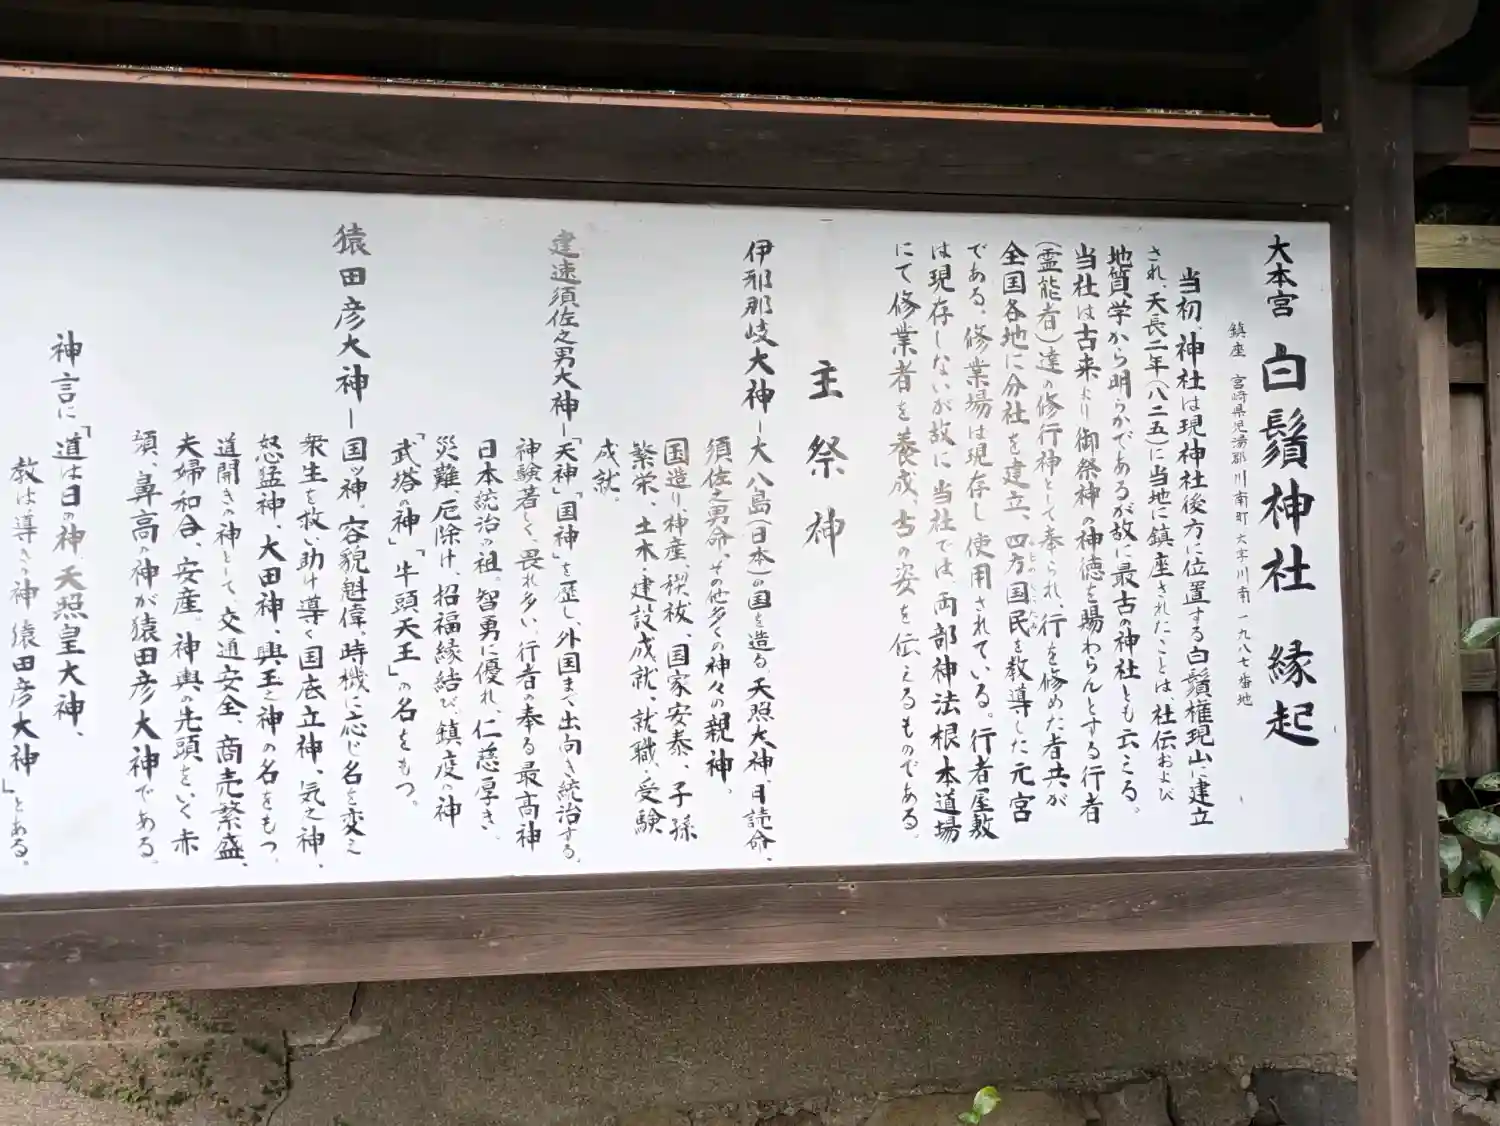 大本宮 白鬚神社 縁起
鎮座 宮崎県児湯郡川南町大字川南一九八七番地
当初、神社は現神社後方に位置する白鬚権現山に建立
され、天長二年(八二五)に当地に鎮座されたことは、社伝および
地質学から明らかであるが故に最古の神社とも云える。
当社は古来より御祭神の神徳を賜わらんとする行者
(霊能者)達の修行神として奉られ、行を修めた者共が
全国各地に分社を建立、四方国民を教導した元宮
である。修業場は現存し使用されている。行者屋敷
は現存しないが故に当社では、両部神法根本道場
にて修業者を養成、古の姿を伝えるものである。
主祭神
伊邪那岐大神―大八島(日本)の国を造る。天照大神、月読命、
須佐之男命、その他多くの神々の親神。
国造り、神産、禊祓、国家安泰、子孫
繁栄、土木・建設成就、就職、受験
成就。
建速須佐之男大神―「天神」「国神」を歴し、外国まで出向き統治する。
神験著しく、畏れ多い。行者の奉る最高神
日本統治の祖。智勇に優れ、仁慈厚き。
災難、厄除け、招福縁結び、鎮疫の神
「武塔の神」「牛頭天王」の名をもつ。
猿田彦大神―国ッ神。容貌魁偉、時機に応じ名を変え
衆生を救い助け導く国底立神、気之神、
怒猛神、大田神、興玉之神の名をもつ。
道開きの神として、交通安全、商売繁盛、
夫婦和合、安産。神輿の先頭をいく赤
頭、鼻高の神が猿田彦大神である。
神言に「道は日の神、天照皇大神、
教は導き神猿田彦大神」とある。